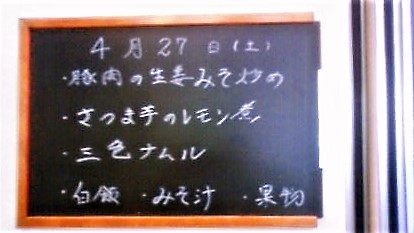 4月27日(土)
・豚肉の生姜みそ炒め
・さつま芋のレモン煮
・三色ナムル
・白飯 ・みそ汁 ・果物